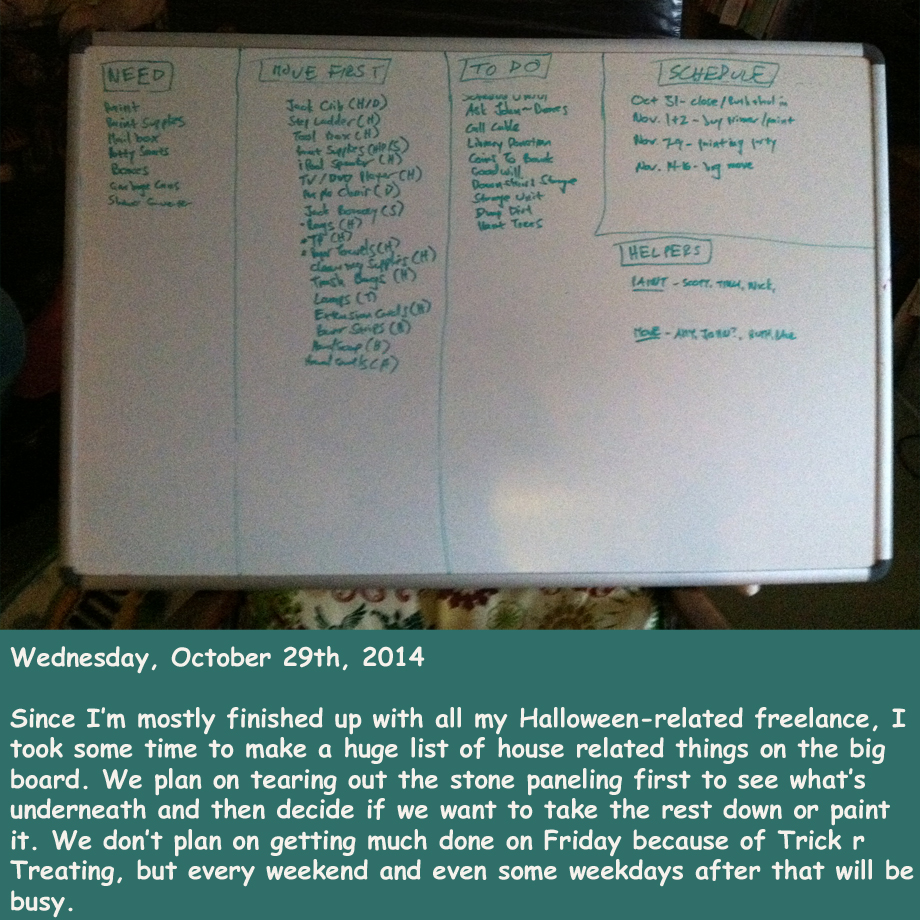 NEED
Paint
Paint Supplies
Mail box
Potty Seats
Boxes
Garbage Cans
Shower
MOVE FIRST
Jack Crib (H/D)
Step Ladder (H)
Tool Box (H)
Paint Supplies
iPod Speaker (H)
TV/DVD Player (H)
Purple Chair (D)
Jack (S)
Bags (H)
TP (H)
Paper Towels (H)
Cleaning Supplies (H)
Trash Bags (H)
Lamps (T)
Extension Cords (H)
Power Strips (H)
Hand Soap (B)
Hand towels
TO DO
Ask John - Doors
Call Cable
Library Donation
Coins To Bank
Goodwill
Downstairs Storage
Storage Unit
Dump Dirt
Trees
SCHEDULE
Oct 31 - close/
Nov. 1+2 - buy primer/paint
Nov. 7-9 - painting party
Nov. 14-16 - big move
HELPERS
PAINT - SCOTT, Nick,
MOVE - JOHN?,
Wednesday, October 29th, 2014
Since I'm mostly finished up with all my Halloween-related freelance, I
took some time to make a huge list of house related things on the big
board. We plan on tearing out the stone paneling first to see what's
underneath and then decide if we want to take the rest down or paint
it. We don't plan on getting much done on Friday because of Trick r
Treating, but every weekend and even some weekdays after that will be
busy.